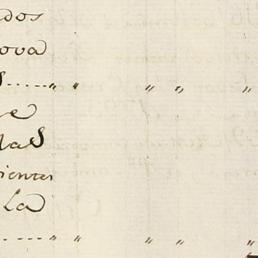 dos
ova
s..... " " " " "
e
las
ientes
la
..... " " " " "